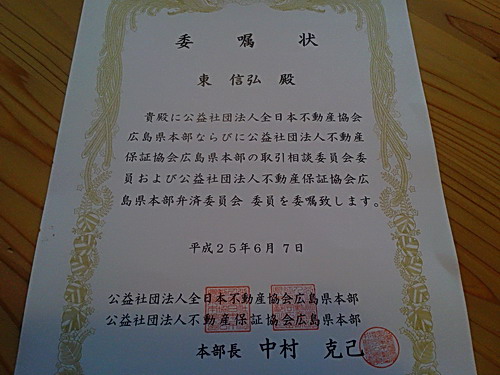 委嘱状
東 信弘 殿
貴殿に公益社団法人全日本不動産協会
広島県本部ならびに公益社団法人不動産
保証協会広島県本部の取引相談委員会委
員および公益社団法人不動産保証協会広
島県本部弁済委員会 委員を委嘱致します。
平成25年6月7日
公益社団法人全日本不動産協会広島県本部
公益社団法人不動産保証協会広島県本部
本部長 中村 克己